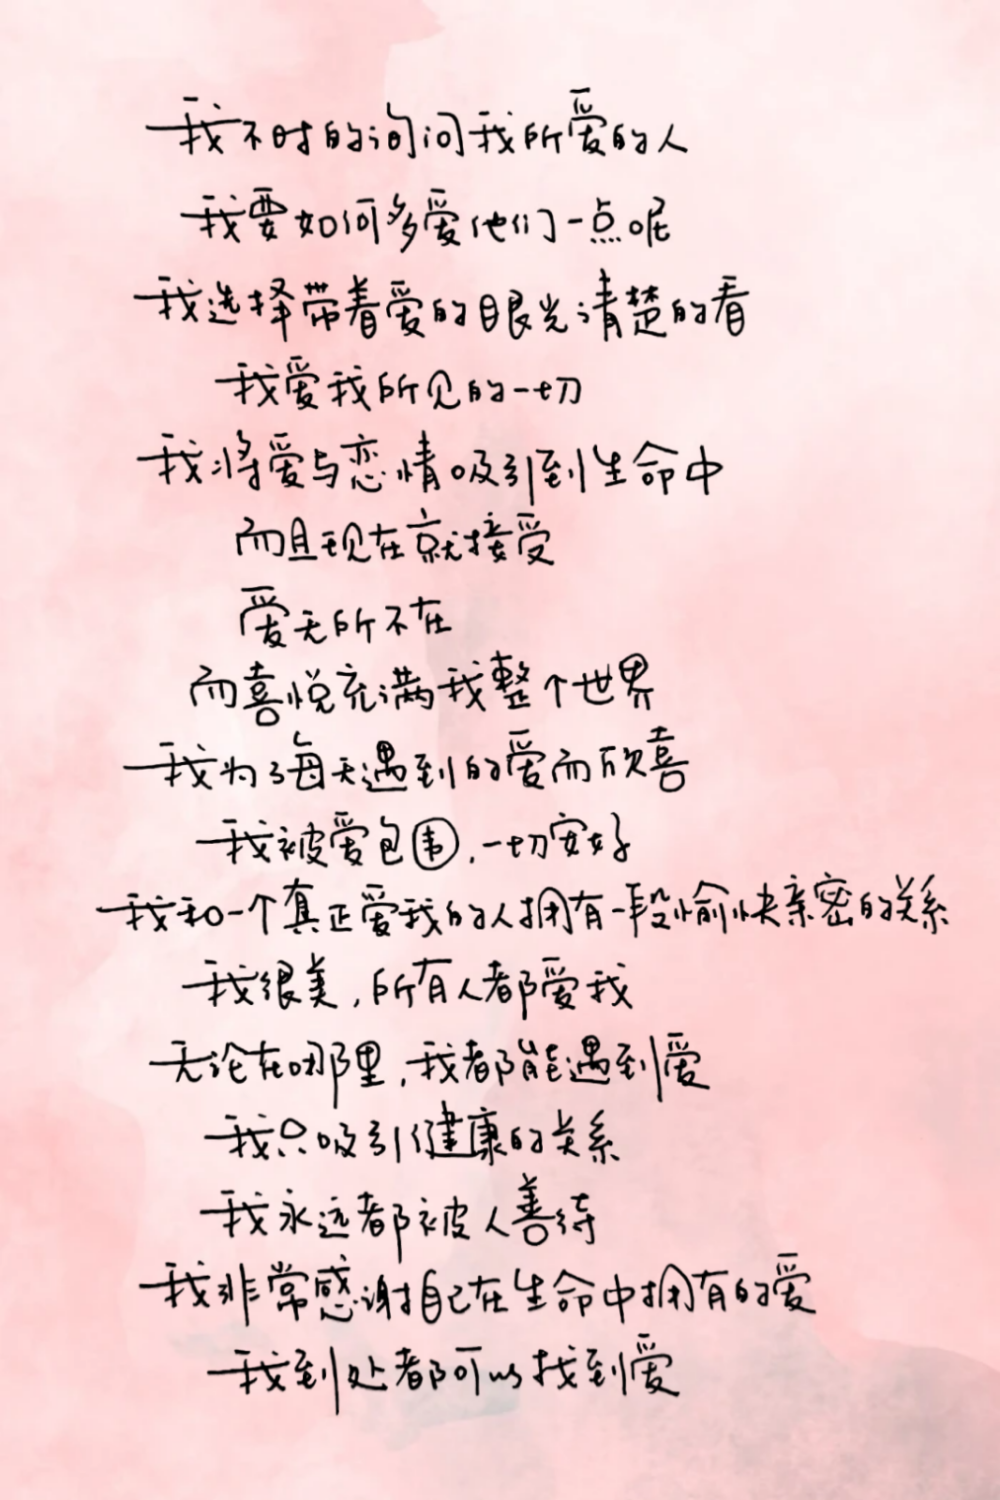 我不时的询问我所爱的人
我要如何多爱他们一点呢
我选择带着爱的眼光清楚的看
我爱我所见的一切
我将爱与恋情吸引到生命中
而且现在就接受
爱无所不在
而喜悦充满我整个世界
我为了每天遇到的爱而欣喜
我被爱包围,一切安好
我和一个真正爱我的人拥有一段愉快亲密的关系
我很美,所有人都爱我
无论在哪里,我都能遇到爱
我只吸引健康的关系
我永远都被人善待
我非常感谢自己在生命中拥有的爱
我到处都可以找到爱